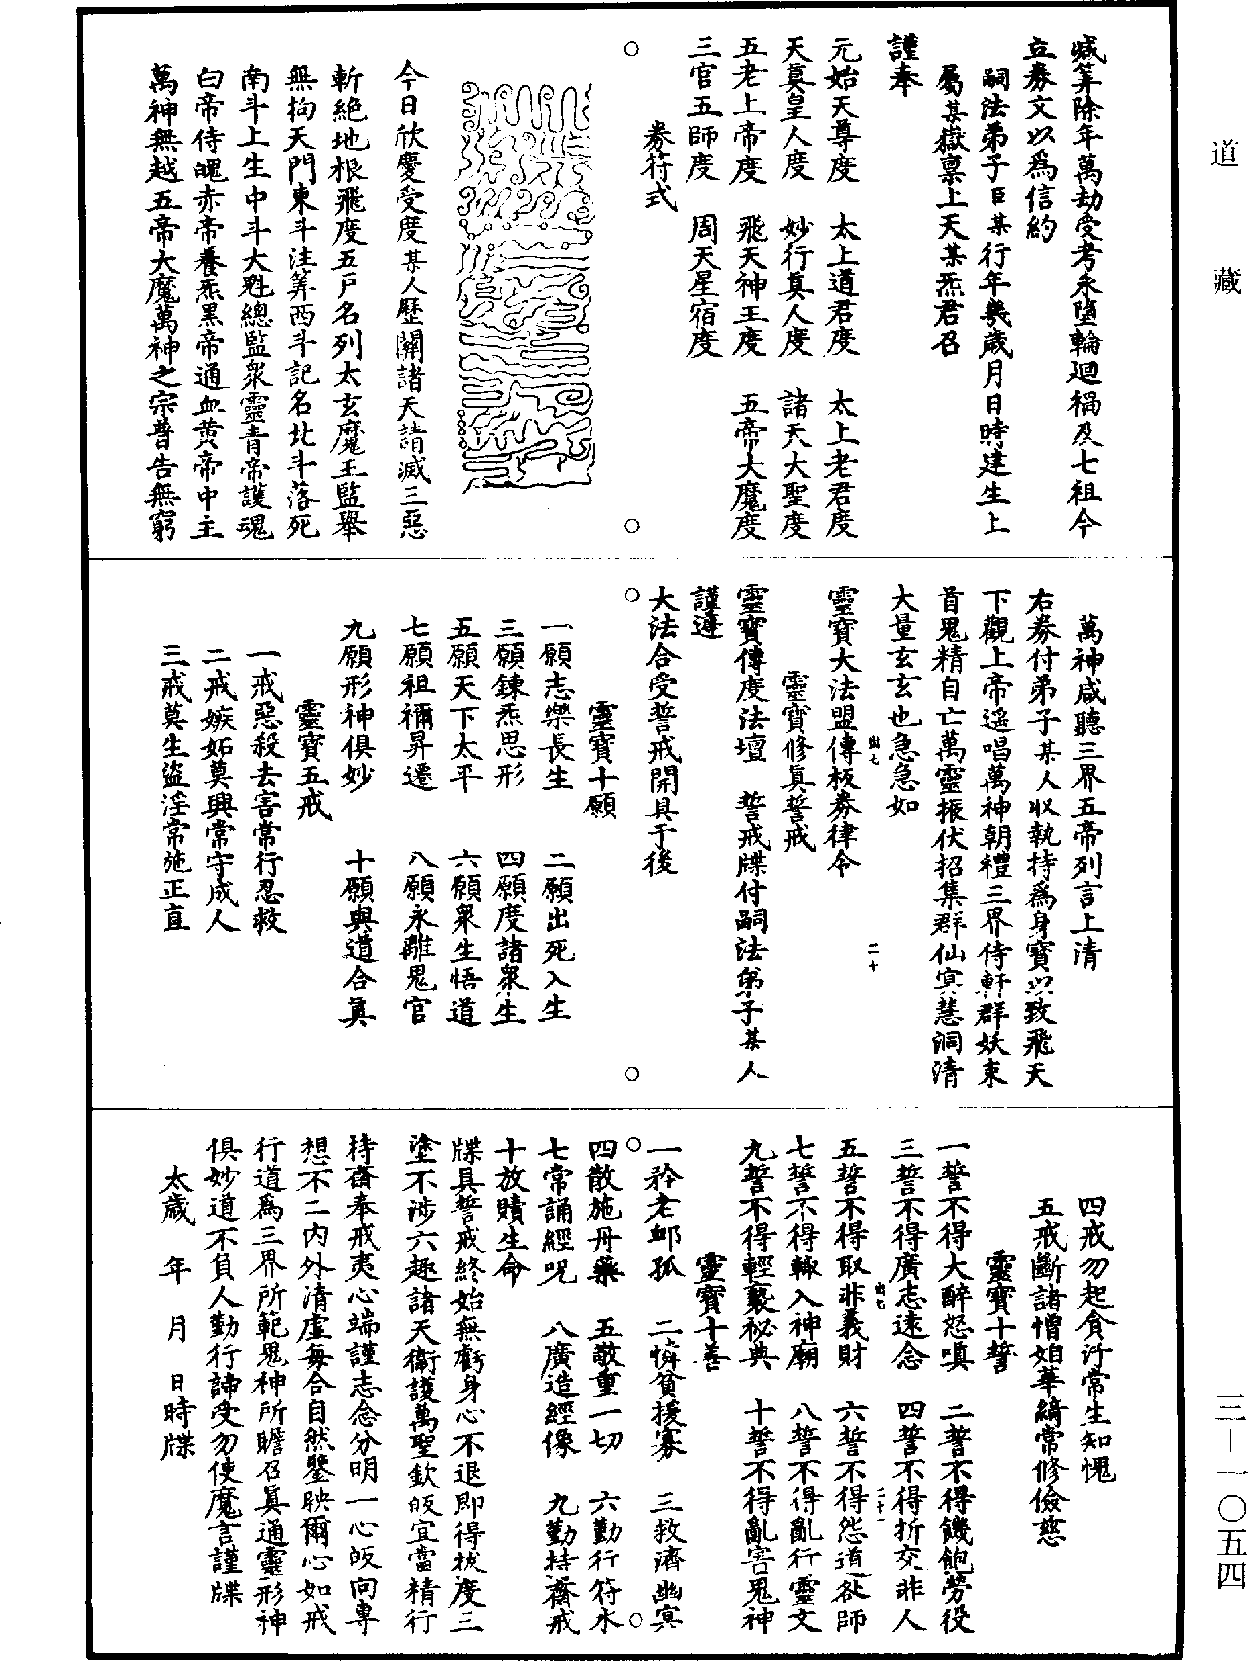 道藏
減筭除年萬劫受考永墮輪廻禍及七祖今
立券文以爲信約
嗣法弟子臣某行年幾歲月日時建生上
屬某嶽稟上天某炁君召
謹奉
元始天尊度 太上道君度 太上老君度
天真皇人度 妙行真人度 諸天大聖度
五老上帝度 飛天神王度 五帝大魔度
三官五師度 周天星宿度
券符式
○ ○
今日欣慶受度某人歷關諸天請滅三惡
斬絕地根飛度五戶名列太玄魔王監舉
無拘天門東斗注筭西斗記名北斗落死
南斗上生中斗大魁總監衆靈青帝護魂
白帝侍魄赤帝養炁黑帝通血黄帝中主
萬神無越五帝大魔萬神之宗普告無窮
萬神咸聽三界五帝列言上清
右券付弟子某人收執持爲身寶以致飛天
下觀上帝遥唱萬神朝禮三界侍軒群妖束
首鬼精自亡萬靈振伏招集群仙冥慧洞清
大量玄玄也急急如
靈寶大法盟傳板券律令
二十
靈寶修真誓戒
靈寶傳度法壇 誓戒牒付嗣法弟子某人
謹遵
大法合受誓戒開具于後
○ ○
靈寶十願
一願志樂長生 二願出死入生
三願鍊炁思形 四願度諸衆生
五願天下太平 六願衆生悟道
七願祖禰昇遷 八願永離鬼官
九願形神俱妙 十願與道合真
靈寶五戒
一戒惡殺去害常行忍救
二戒嫉妬莫興常守成人
三戒莫生盜淫常施正直
四戒勿起貪汙常生知愧
五戒斷諸憎妲華綺常修儉慈
靈寶十誓
一誓不得大醉怒嗔 二誓不得饑飽勞役
三誓不得廣志遠念 四誓不得折交非人
五誓不得取非義財 六誓不得怨道咎師
二十一
七誓不得輒入神廟 八誓不得亂行靈文
九誓不得輕褻祕典 十誓不得亂害鬼神
靈寶十善
一矜老邺孤 二憐貧援寡 三救濟幽冥
○ ○
四散施丹藥 五敬重一切 六勤行符水
七常誦經呪 八廣造經像 九勤持齋戒
十放贖生命
牒具誓戒終始無虧身心不退即得拔度三
塗不涉六趣諸天衞護萬聖欽皈宜當精行
持齋奉戒夷心端謹志念分明一心皈向專
想不二内外清虚每合自然鑒映爾心如戒
行道爲三界所範鬼神所瞻召真通靈形神
俱妙道不負人勤行諦受勿使魔言謹牒
太歲 年 月 日時牒
三一一〇五四